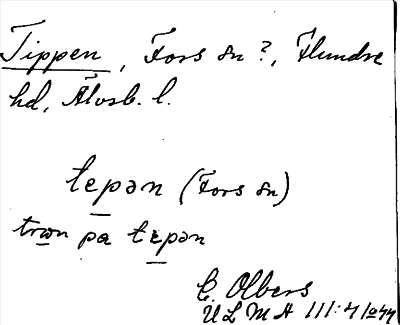 Tippen, Fors sn?, Flundre
hd, Älvsb. l.
tepən (Fors sn)
trɷn pa tepən
E. Olbers
ULMA 111: